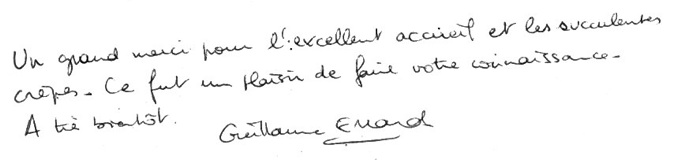 Un grand merci pour l'excellent accueil et les succulentes
crêpes. Ce fut un plaisir de faire votre connaissance.
A très bientôt.
Guillaume